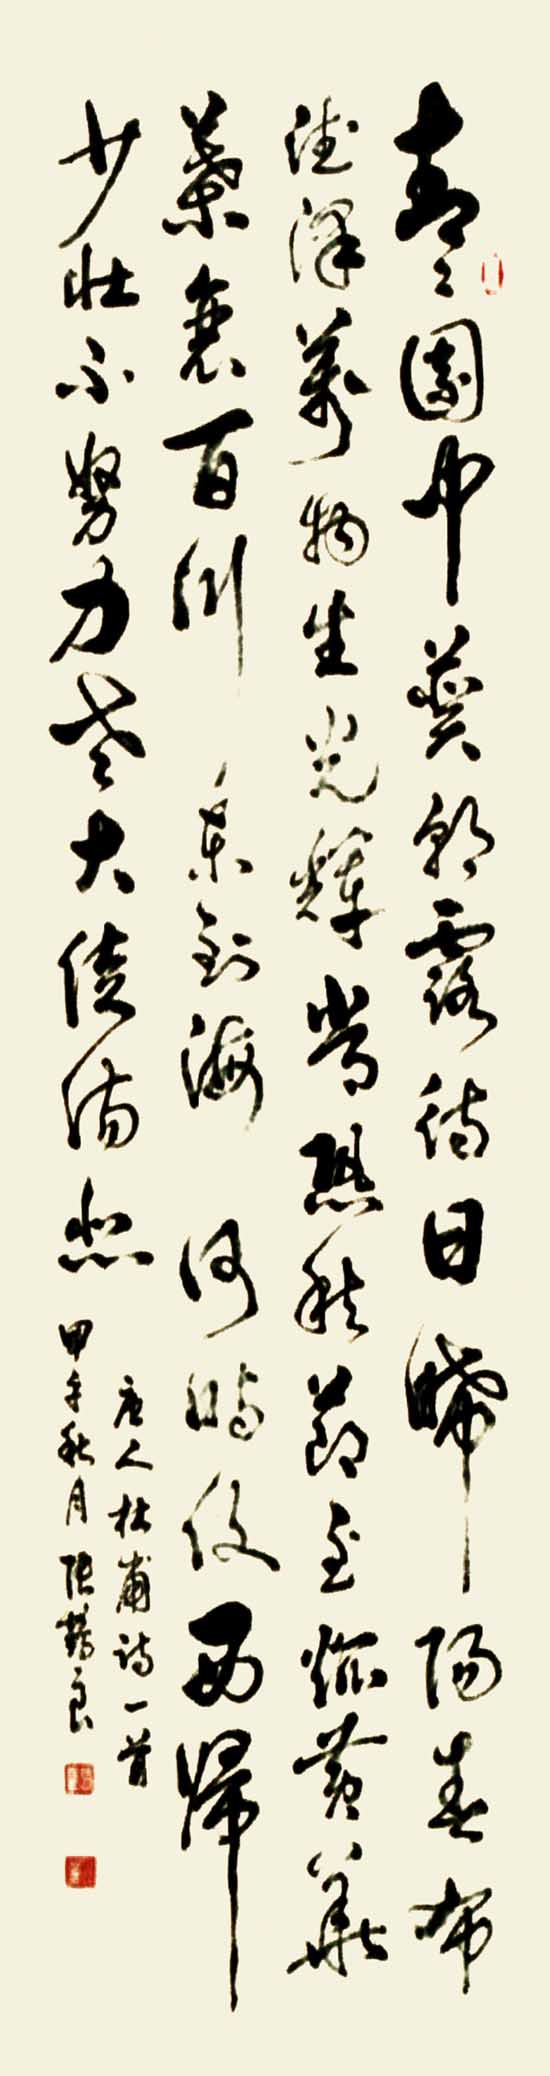 青々園中葵朝露待日晞陽春布
德澤萬物生光輝常恐秋節至焜黃華
葉衰百川東到海何時復西歸
少壯不努力老大徒傷悲
唐人杜甫詩一首
甲午秋月張楊良